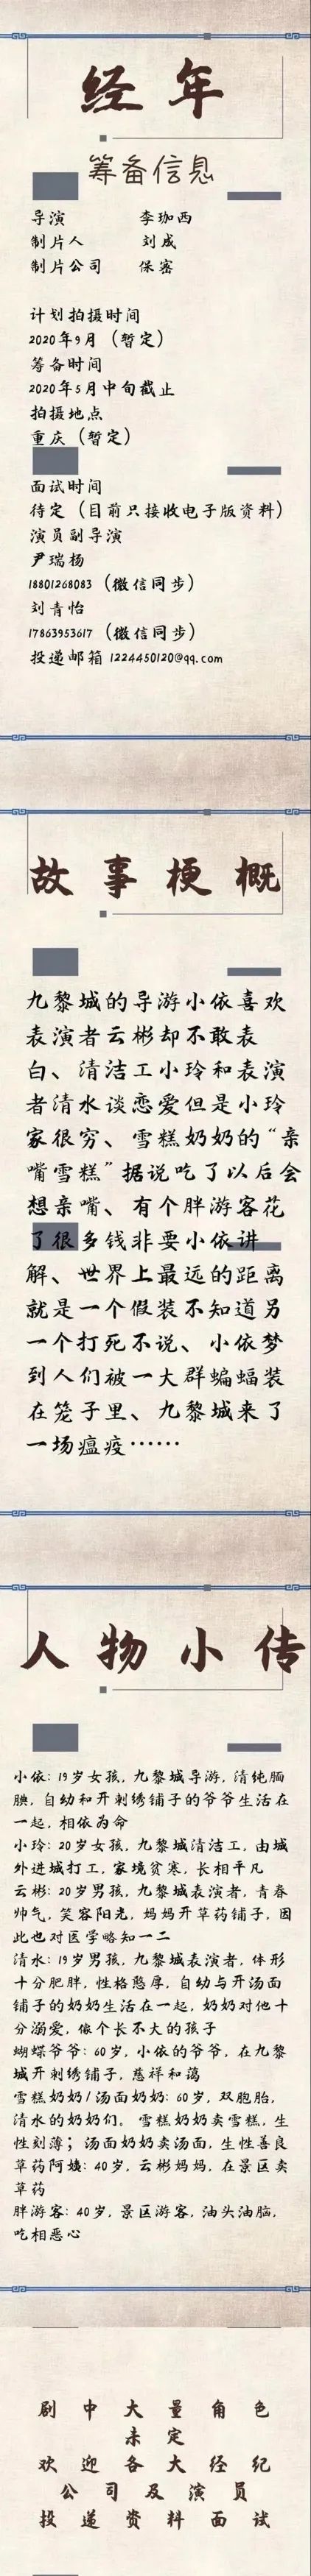 经年
筹备信息
导演 李珈西
制片人 刘成
制片公司 保密
计划拍摄时间
2020年9月（暂定）
筹备时间
2020年5月中旬截止
拍摄地点
重庆（暂定）
面试时间
待定（目前只接收电子版资料）
演员副导演
尹瑞杨
18801268083（微信同步）
刘青怡
17863953617（微信同步）
投递邮箱 1224450120@qq.com
故事梗概
九黎城的导游小依喜欢
表演者云彬却不敢表
白、清洁工小玲和表演
者清水谈恋爱但是小玲
家很穷、雪糕奶奶的“亲
嘴雪糕”据说吃了以后会
想亲嘴、有个胖游客花
了很多钱非要小依讲
解、世界上最远的距离
就是一个假装不知道另
一个打死不说、小依梦
到人们被一大群蝙蝠装
在笼子里、九黎城来了
一场瘟疫……
人物小传
小依：19岁女孩，九黎城导游，清纯腼
腆，自幼和开刺绣铺子的爷爷生活在
一起，相依为命
小玲：20岁女孩，九黎城清洁工，由城
外进城打工，家境贫寒，长相平凡
云彬：20岁男孩，九黎城表演者，青春
帅气，笑容阳光，妈妈开草药铺子，因
此也对医学略知一二
清水：19岁男孩，九黎城表演者，体形
十分肥胖，性格憨厚，自幼与开汤面
铺子的奶奶生活在一起，奶奶对他十
分溺爱，像个长不大的孩子
蝴蝶爷爷：60岁，小依的爷爷，在九黎
城开刺绣铺子，慈祥和蔼
雪糕奶奶/汤面奶奶：60岁，双胞胎，
清水的奶奶们。雪糕奶奶卖雪糕，生
性刻薄；汤面奶奶卖汤面，生性善良
草药阿姨：40岁，云彬妈妈，在景区卖
草药
胖游客：40岁，景区游客，油头油脑，
吃相恶心
剧中大量角色
未定
欢迎各大经纪
公司及演员
投递资料面试